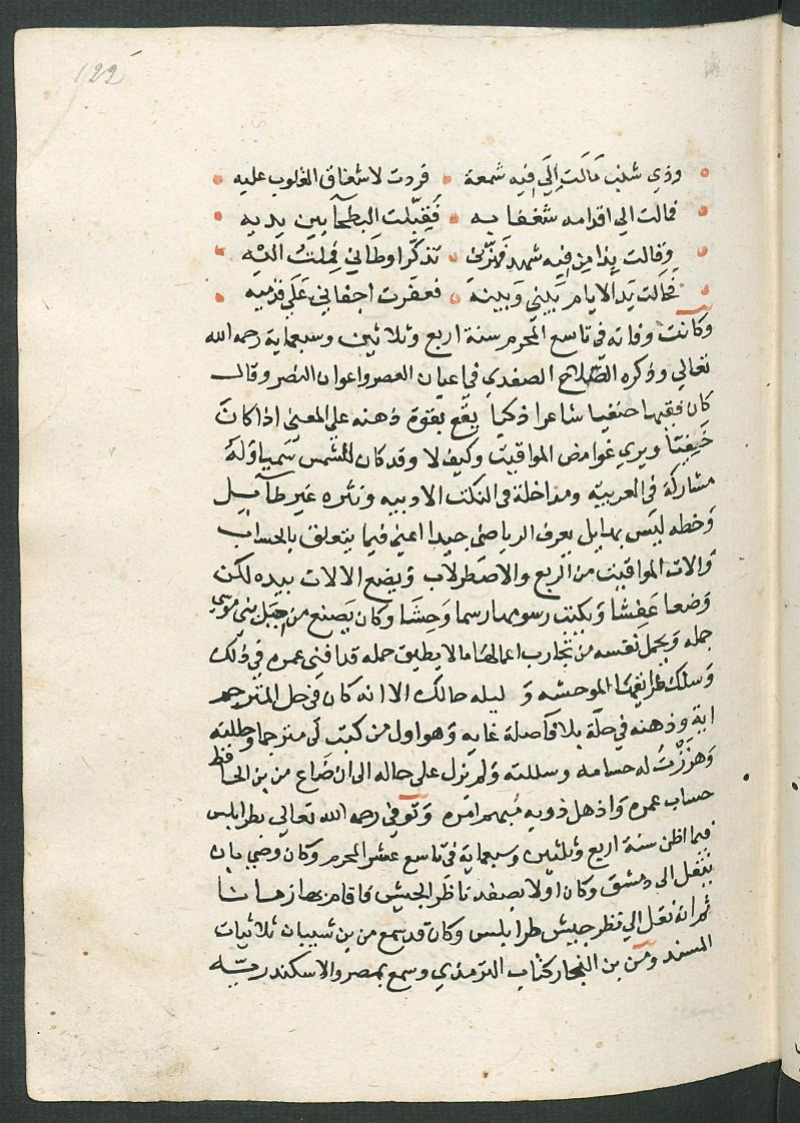 122
وذي شنب مالت الي فيه شمعة • فردت لاشفاق القلوب عليه
فمالت الي اقدامه شغفا به • فقبلت البطحا بين يديه
وقالت بذا من فيه شهد فهزني • تذكر اوطاني فملت اليه
فحالت يد الايام بيني وبينه • فعفرت اجفاني علي قدميه
وكانت وفاته في تاسع المحرم سنة اربع وثلاثين وسبعماية رحمه الله
تعالي وذكره الصلاح الصفدي في اعيان العصر واعوان النصر وقال
كان فقيها حنفيا شاعرا ذكيا يقع بقوة ذهنه علي المعني اذا كان
خفيتا ويري غوامض المواقيت وكيف لا وقد كان للشمس سميا وله
مشاركة في العربيه ومداخلة في النكت الادبيه ونثره غير طآيل
وخطه ليس بهايل يعرف الرياضي جيدا اعني فيما يتعلق بالحساب
والات المواقيت من الربع والاصطرلاب ويضع الالات بيده لكن
وضعا عفشا ويكتب رسومها رسما وحشا وكان يصنع من الحيل بني موسي
جمله ويحمل نفسه من تجارب اعمالها ما لا يطيق حمله قد افني عمره في ذلك
وسلك طرايقها الموحشه و ليله حالك الا انه كان في حل المترجم
اية وذهنه في حلة بلا فاصلة غايه وهو اول من كتب لي مترجما وحللته
وهززت له حسامه وسللته ولم يزل علي حاله الي ان ضاع من بن الحافظ
حساب عمره واذهل ذويه مبهم امره وتوفي رحمه الله تعالي بطرابلس
فيما اظن سنة اربع وثلثين وسبعماية في تاسع عشر المحرم وكان وضي بان
ينتقل الي دمشق وكان اولا بصفد ناظر الجيش فاقام بها زمانا
ثم انه نقل الي نظر جيش طرابلس وكان قد سمع من بن شيبان ثلاثيات
المسند ومن بن النجار كتاب الترمذي وسمع بمصر والاسكندريه